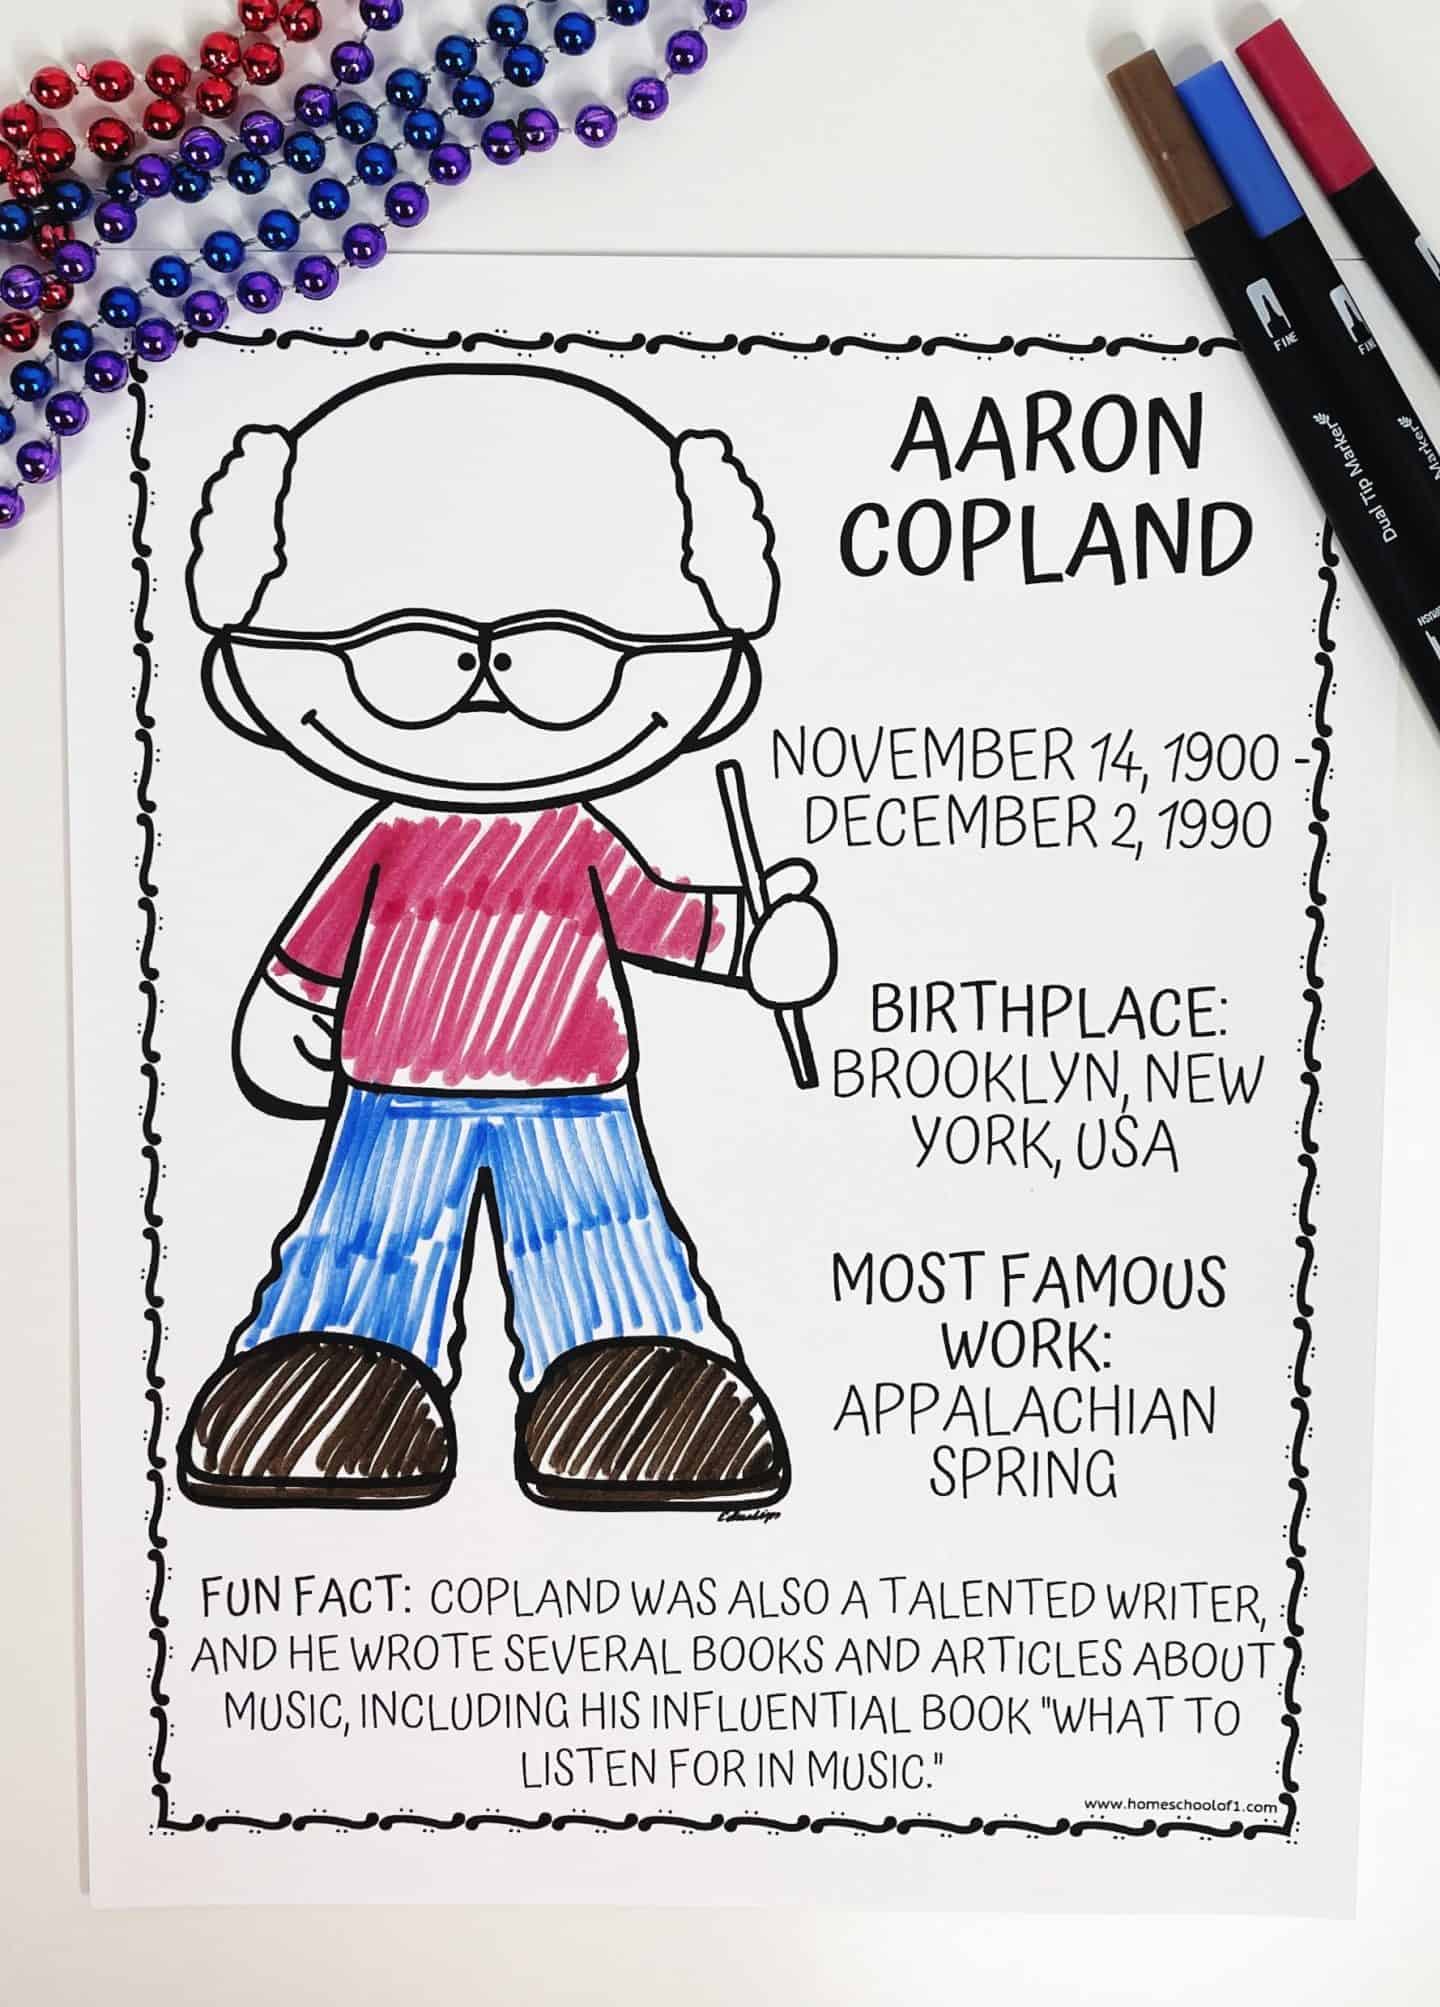 AARON
COPLAND
NOVEMBER 14, 1900 -
DECEMBER 2, 1990
BIRTHPLACE:
BROOKLYN, NEW
YORK, USA
MOST FAMOUS
WORK:
APPALACHIAN
SPRING
FUN FACT: COPLAND WAS ALSO A TALENTED WRITER,
AND HE WROTE SEVERAL BOOKS AND ARTICLES ABOUT
MUSIC, INCLUDING HIS INFLUENTIAL BOOK "WHAT TO
LISTEN FOR IN MUSIC."
www.homeschoolof1.com
FINE
Dual Tip Marker
FIN
Marker